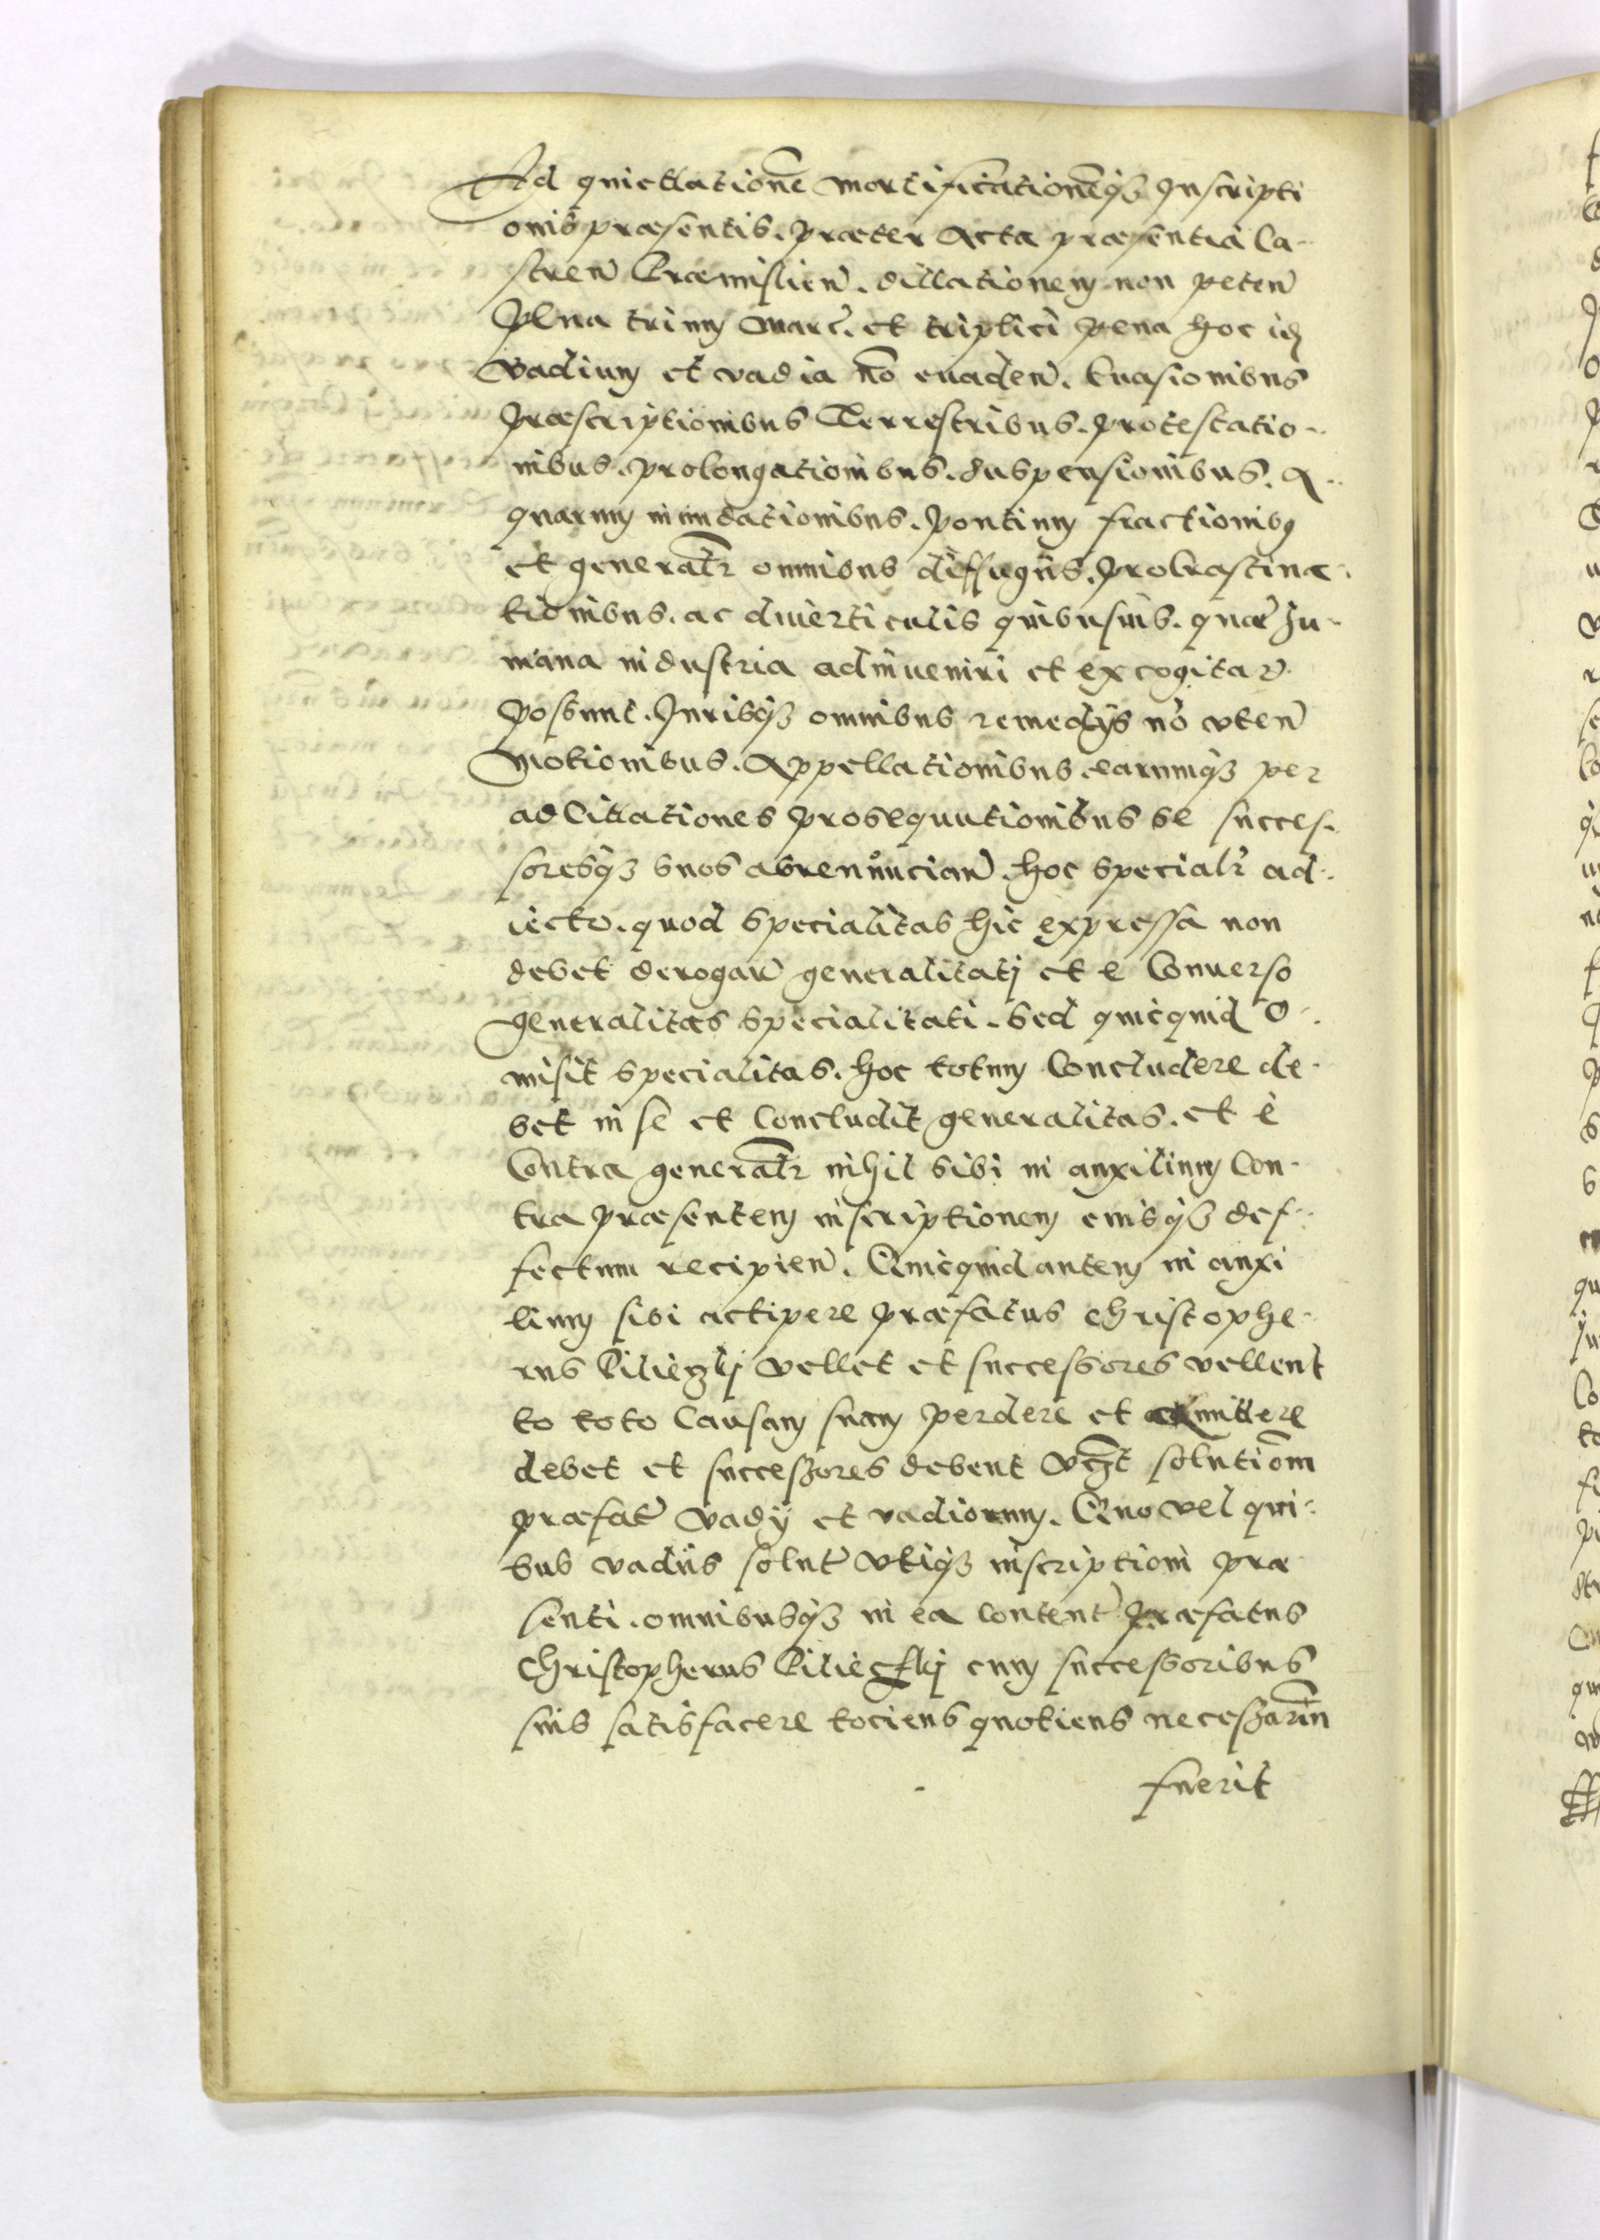 Ad quiettationē mortificationēq3 Inscripti
onis praesentis. praeter Acta praesentia Ca-
stren̄ Praemislien̄. dillationem non peten̄
Pena trium marc̄. et triplici pena hoc id
Vadium et vadia nō euaden̄. Euasionibus
Praescriptionibus Terrestribus. protestatio-
nibus. prolongationibus. suspensionibus. A-
quarum inundationibus. Pontium fractionibus
et generatr̄ omnibus diffugiis. Procrastina-
tionibus. ac diuerticulis quibusuis. quae hu-
mana industria adinueniri et excogitar̄
possunt. Jurisq3 omnibus remedijs nō vten̄
Motionibus. Appellationibus. earumq3 per
ad Cittationes prosequutionibus se succes-
soresq3 suos abrenuncian̄. hoc specialr̄ ad-
iecto. quod specialitas hic expressa non
debet derogar̄ generalitatj et e Conuerso
generalitas specialitati. Sed quicquid o-
misit specialitas. hoc totum Concludere de-
bet in se et Concludit generalitas. et è
Contra generatr̄ nihil sibi in auxilium Con-
tra praesentem inscriptionem eiusq3 def-
fectum recipien̄. Quicquid autem in auxi
lium sibi actipere praefatus Christophe-
rus Pilieczkj vellet et successores vellent
to toto Causam suam perdere et amittere
debet et successores debent vz̄t solutiōm
praefat̄ vadij et vadiorum. Quo vel qui-
bus vadiis solut̄ vtiq3 inscriptioni prae
senti. omnibusq3 in ea content̄ praefatus
Christopherus Pilieczkj cum successoribus
suis satisfacere tociens quotiens necessariū
fuerit